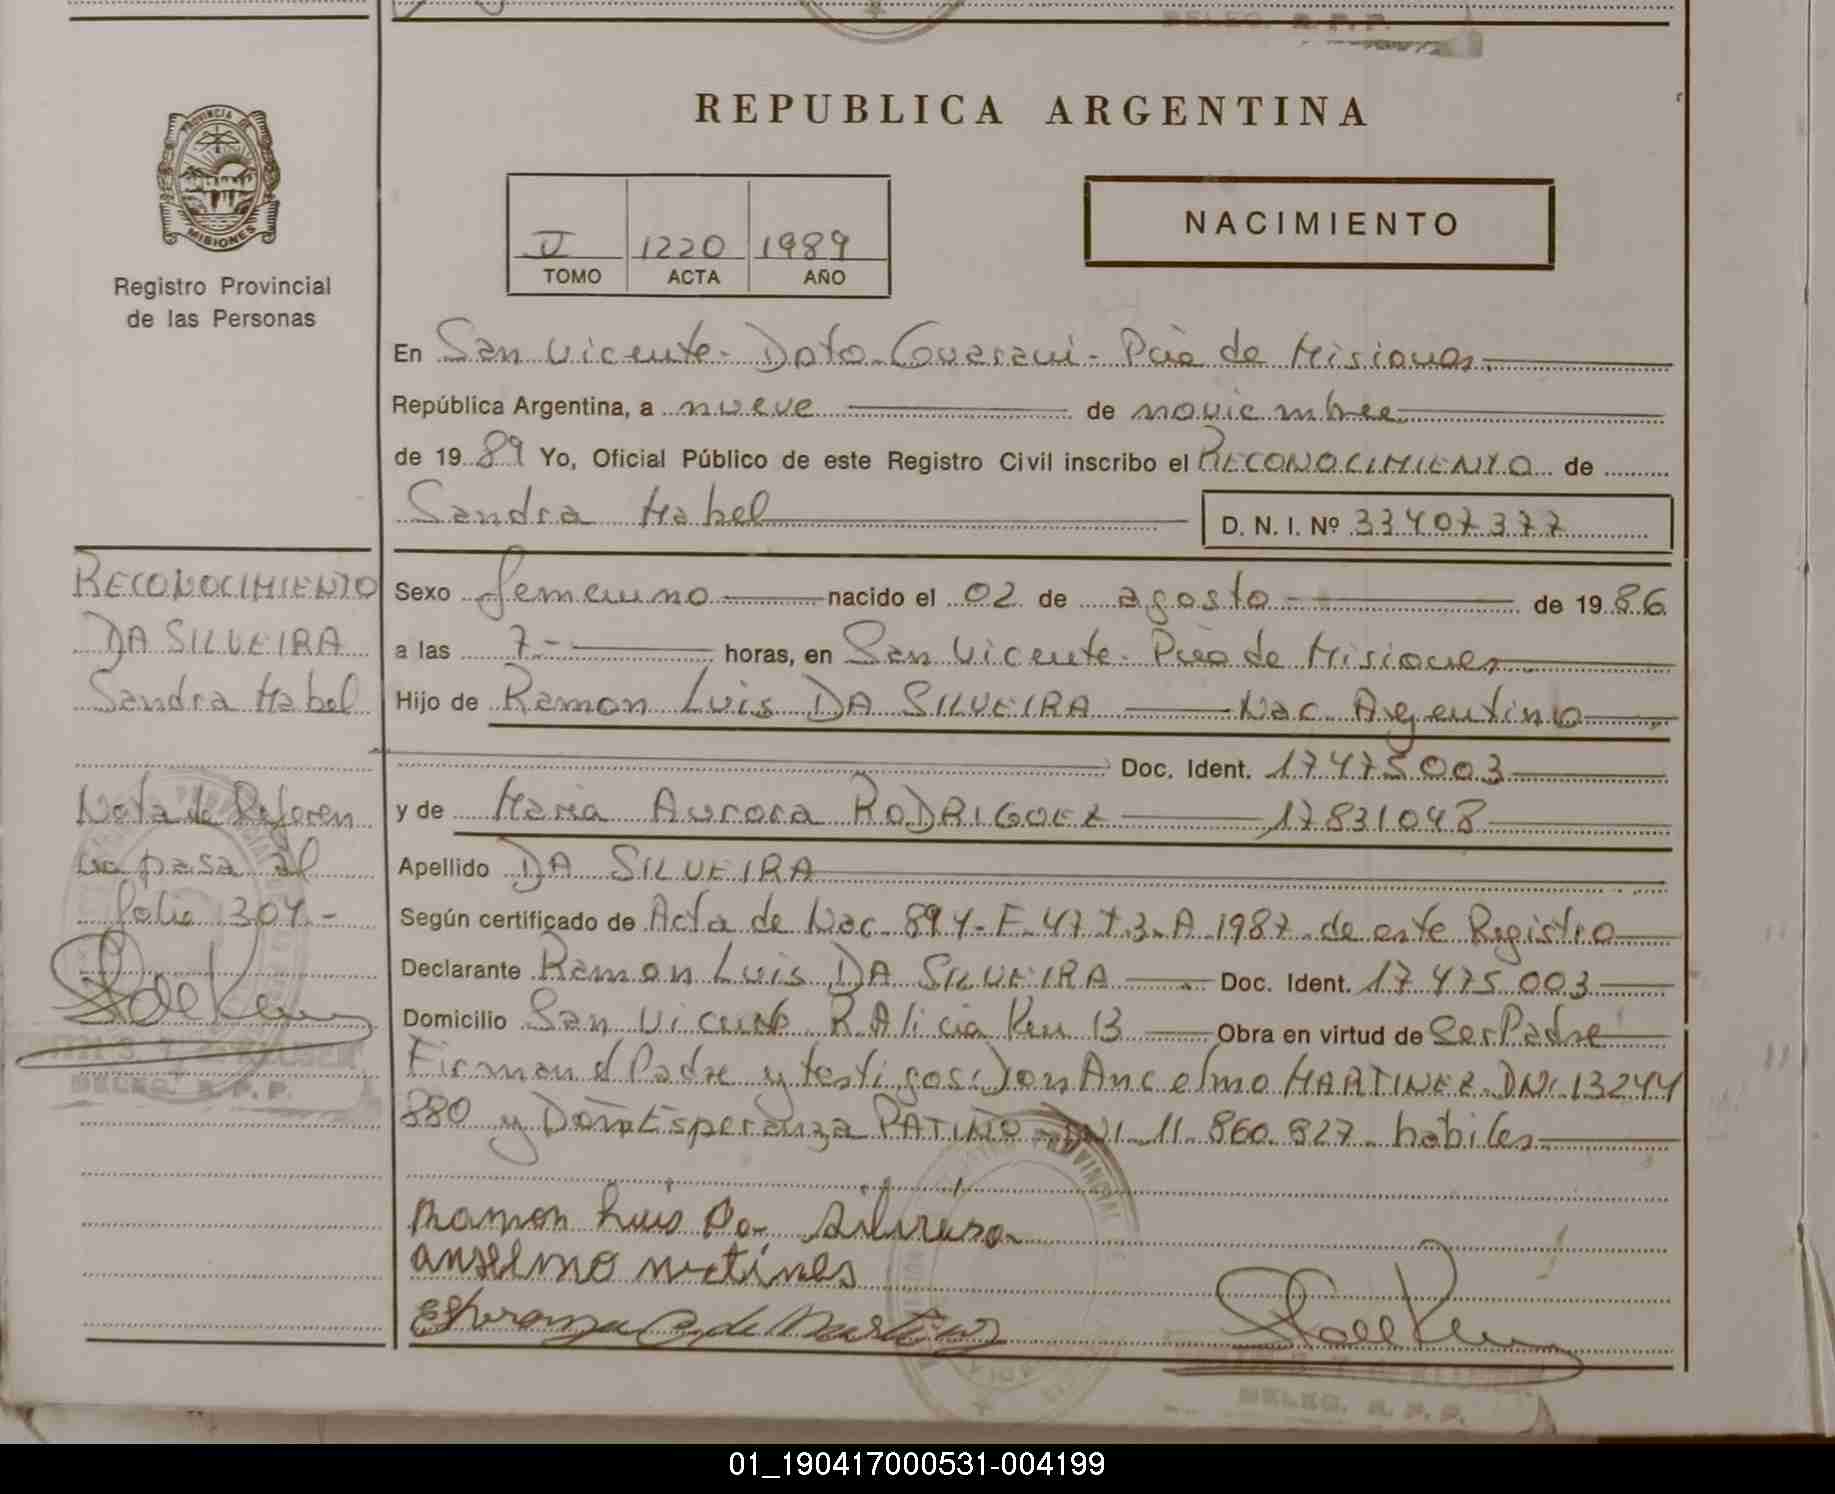 REPUBLICA ARGENTINA
PROVINCIA DE
MISIONES
Registro Provincial
de las Personas
V 1220 1989
TOMO ACTA AÑO
NACIMIENTO
En San Vicente - Dpto. Guarani - Pcia de Misiones
República Argentina, a nueve de noviembre
de 1989 Yo, Oficial Público de este Registro Civil inscribo el RECONOCIMIENTO de
Sandra Mabel D. N. I. Nº 33407377
Sexo femenino nacido el 02 de agosto de 1986
a las 7- horas, en San Vicente - Pcia de Misiones
Hijo de Ramon Luis DA SILVEIRA Nac. Argentino
Doc. Ident. 17475003
y de Maria Aurora RODRIGUEZ 17831048
Apellido DA SILVEIRA
Según certificado de Acta de Nac 894-F-47 T3-A 1987 de este Registro
Declarante Ramon Luis DA SILVEIRA Doc. Ident. 17 475 003
Domicilio San Vicente R Alicia Km 13 Obra en virtud de Ser Padre
Firman el Padre y testigos: Don Ancelmo MARTINEZ DNI 13244
880 y Doña Esperanza PATIÑO DNI 11.860.827 habiles
Ramon Luis Da Silveira
anselmo
Esperanza de
DELEG. R. P. P.
RECONOCIMIENTO
DA SILVEIRA
Sandra Mabel
Nota de Referen
cia pasa al
folio 304.-
DELEG. R. P. P.
01_190417000531-004199